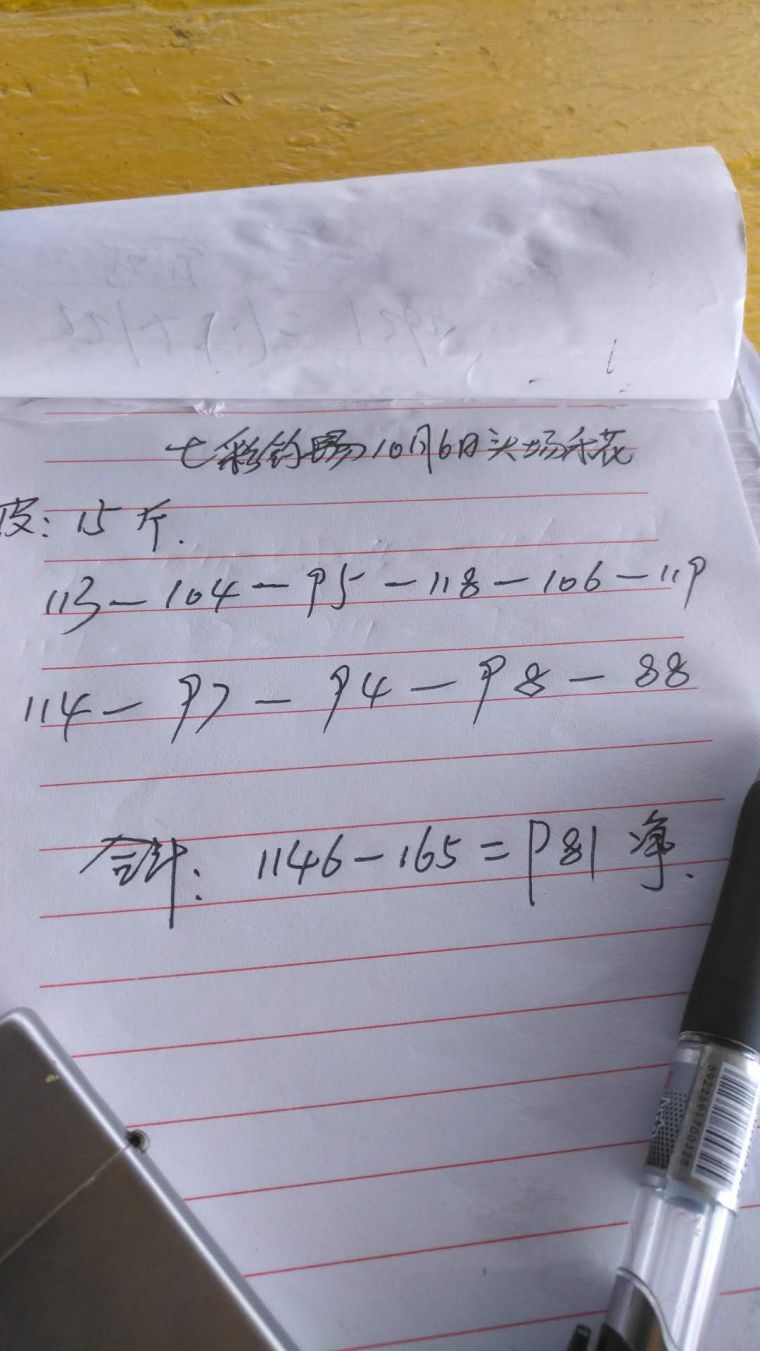 七彩钓场10月6日头场禾花
皮：15斤.
113－104－95－118－106－119
114－97－94－98－88
合计：1146－165＝981净.